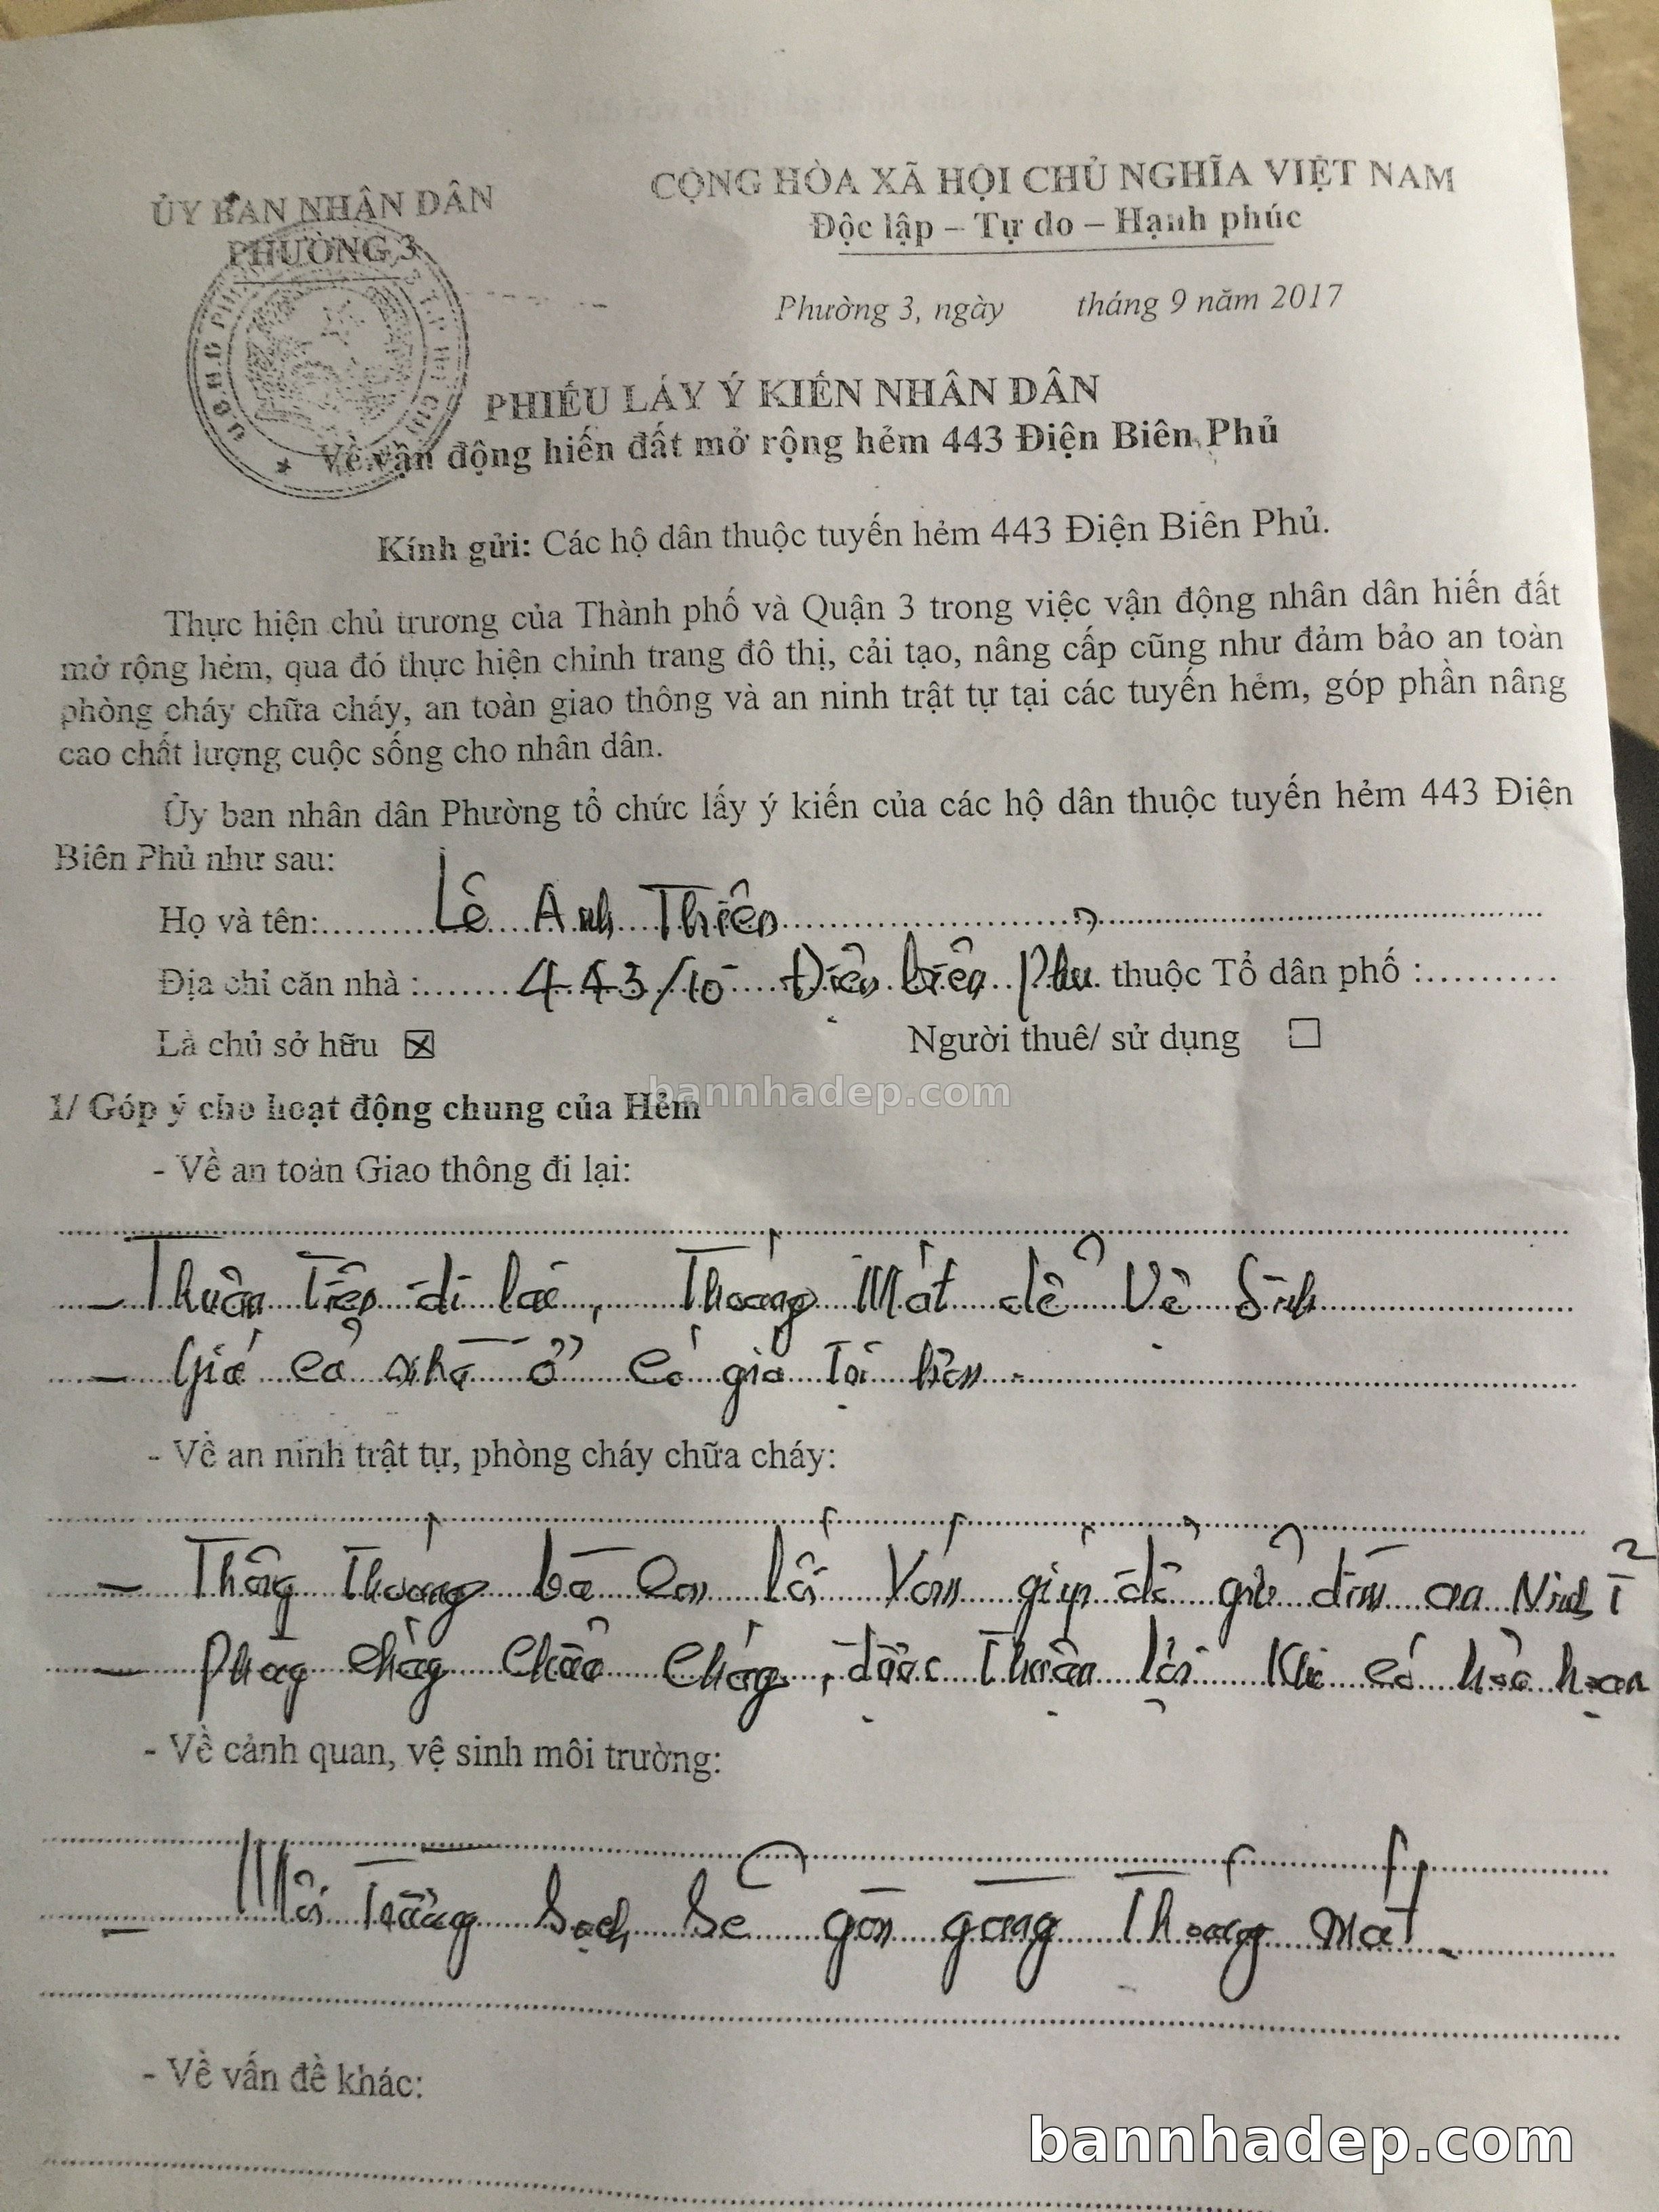 ỦY BAN NHÂN DÂN
PHƯỜNG 3
CỘNG HÒA XÃ HỘI CHỦ NGHĨA VIỆT NAM
Độc lập – Tự do – Hạnh phúc
Phường 3, ngày tháng 9 năm 2017
PHIẾU LẤY Ý KIẾN NHÂN DÂN
Về vận động hiến đất mở rộng hẻm 443 Điện Biên Phủ
Kính gửi: Các hộ dân thuộc tuyến hẻm 443 Điện Biên Phủ.
Thực hiện chủ trương của Thành phố và Quận 3 trong việc vận động nhân dân hiến đất
mở rộng hẻm, qua đó thực hiện chỉnh trang đô thị, cải tạo, nâng cấp cũng như đảm bảo an toàn
phòng cháy chữa cháy, an toàn giao thông và an ninh trật tự tại các tuyến hẻm, góp phần nâng
cao chất lượng cuộc sống cho nhân dân.
Ủy ban nhân dân Phường tổ chức lấy ý kiến của các hộ dân thuộc tuyến hẻm 443 Điện
Biên Phủ như sau:
Họ và tên: Lê Anh Thiên
Địa chỉ căn nhà : 443/10 Điện biên Phủ thuộc Tổ dân phố :
Là chủ sở hữu ☒ Người thuê/ sử dụng ☐
bannhadep.com
1/ Góp ý cho hoạt động chung của Hẻm
- Về an toàn Giao thông đi lại:
- Thuân Tiên đi lai, Thoáng Mát dể Vệ Sinh
- Giá cả nhà ở có giá
- Về an ninh trật tự, phòng cháy chữa cháy:
- Thông Thoáng bà con lối xóm giúp đở
- Phòng cháy chửa cháy, được Thuận lợi Khi có hỏa hoạn
- Về cảnh quan, vệ sinh môi trường:
- Môi Trường Sạch Sẽ gòn gàng Thoáng mát.
- Về vấn đề khác:
bannhadep.com